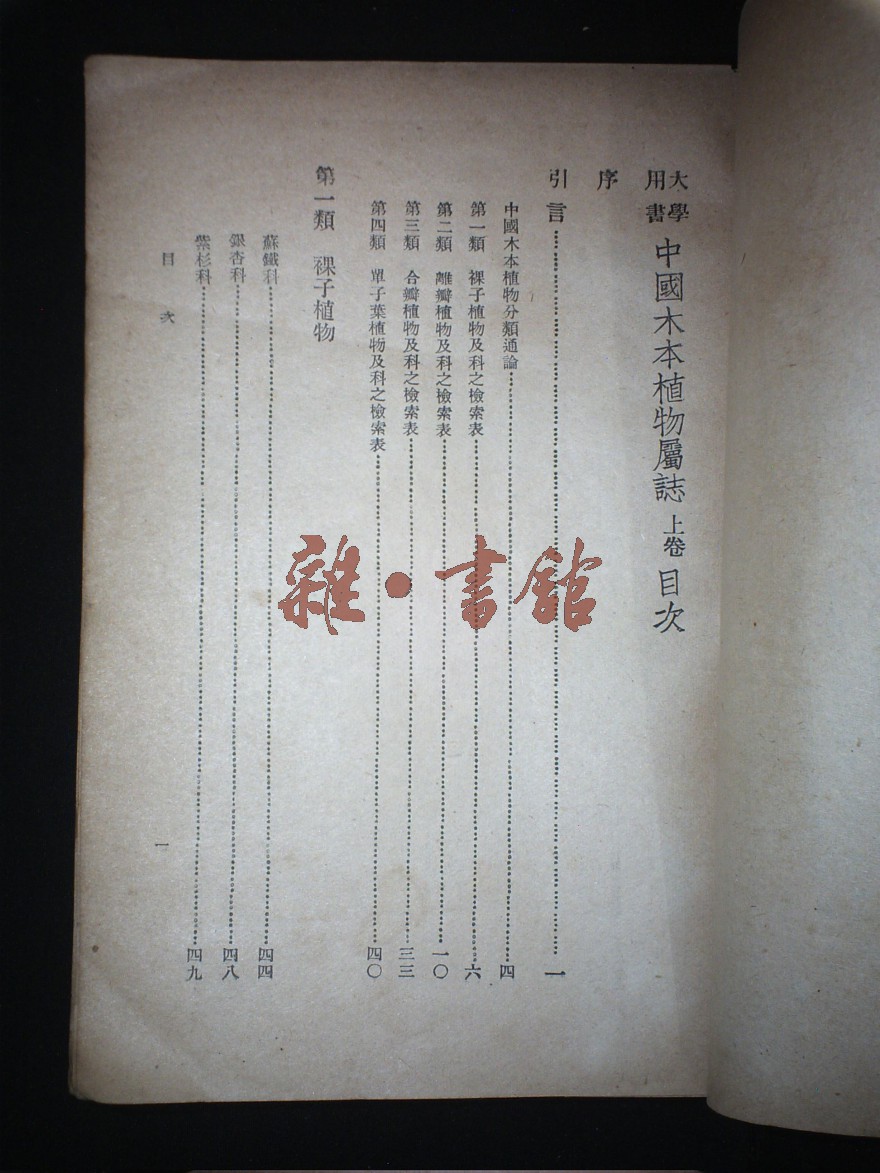 大學用書 中國木本植物屬誌 上卷 目次
序
引言……一
中國木本植物分類通論……四
第一類 裸子植物及科之檢索表……六
第二類 離瓣植物及科之檢索表……一〇
第三類 合瓣植物及科之檢索表……三三
第四類 單子葉植物及科之檢索表……四〇
第一類 裸子植物
蘇鐵科……四四
銀杏科……四八
紫杉科……四九
目次 一
雜·書館